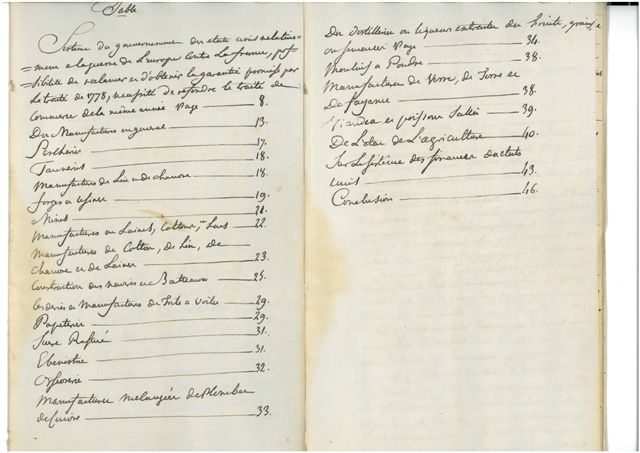 Table
Sisteme du gouvernement des etats unis relative-
=ment a la guerre de L'europe Contre La france, pos-
sibilite de reclamer et d'obtenir la garantie promise par
Le traité de 1778, necessité de refondre le traité de
Commerce de la même année Page — 8.
Des Manufactures en general — 13.
— 17.
Tanneries — 18.
Manufactures de Lin et de chanvre — 18.
forges a — 19.
Mines — 21.
Manufactures en Laines, Cottons, — 22.
Manufactures de Cotton, de Lin, de
Chanvre et de Laines — 23.
Construction des navires et Batteaux — 25.
Corderies et Manufactures de Toile a Voiles — 29.
Papeterie — 29.
Sucre Raffiné — 31.
Ebenisterie — 31.
Orfevrerie — 32.
Manufactures melangées de Plomb et
de Cuivre — 33.
Des Distilleries ou liqueurs extraites des fruits, grains
ou semences Page — 34.
Moulins a Poudre — 38.
Manufactures de Verre, de Terre et
de fayance — 38.
Viandes et poissons Sallés — 39.
De L'etat de L'agriculture — 40.
Sur Le sistême des finances des etats
unis — 43.
Conclusion — 46.